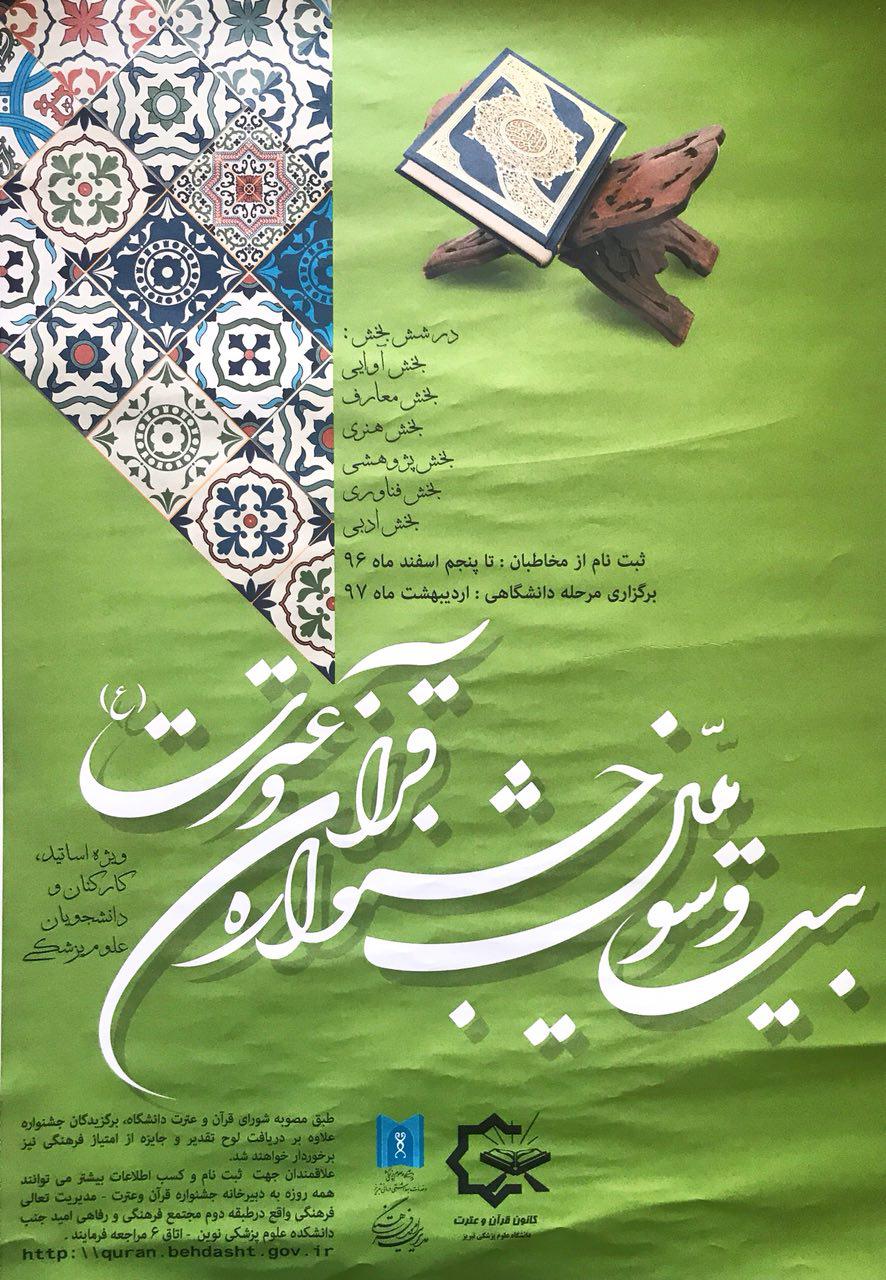 در شش بخش :
بخش آوایی
بخش معارف
بخش هنری
بخش پژوهشی
بخش فناوری
بخش ادبی
ثبت نام از مخاطبان : تا پنجم اسفند ماه ۹۶
برگزاری مرحله دانشگاهی : اردیبهشت ماه ۹۷
بیست و سومین جشنواره
قرآن و عترت (ع)
ویژه اساتید،
کارکنان و
دانشجویان
علوم پزشکی
طبق مصوبه شورای قرآن و عترت دانشگاه، برگزیدگان جشنواره
علاوه بر دریافت لوح تقدیر و جایزه از امتیاز فرهنگی نیز
برخوردار خواهند شد.
علاقمندان جهت ثبت نام و کسب اطلاعات بیشتر می توانند
همه روزه به دبیرخانه جشنواره قرآن وعترت - مدیریت تعالی
فرهنگی واقع درطبقه دوم مجتمع فرهنگی و رفاهی امید جنب
دانشکده علوم پزشکی نوین - اتاق ۶ مراجعه فرمایند .
http:\\quran.behdasht.gov.ir
کانون قرآن و عترت
دانشگاه علوم پزشکی تبریز